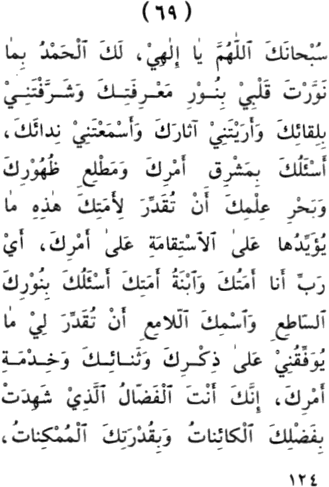 (٦٩)
سُبْحانَكَ ٱللّٰهُمَّ يٰا إِلٰهِيْ، لَكَ ٱلْحَمْدُ بِمٰا
نَوَّرْتَ قَلْبِيْ بِنُوْرِ مَعْرِفَتِكَ وَشَرَّفْتَنِيْ
بِلِقائِكَ وَأَرَيْتَنِيْ آثارَكَ وَأَسْمَعْتَنِيْ نِدائَكَ،
أَسْئَلُكَ بِمَشْرِقِ أَمْرِكَ وَمَطْلِعِ ظُهُوْرِكَ
وَبَحْرِ عِلْمِكَ أَنْ تُقَدِّرَ لِأَمَتِكَ هٰذِهِ مٰا
يُؤَيِّدُها عَلىٰ ٱلْاسْتِقامَةِ عَلىٰ أَمْرِكَ، أَيْ
رَبِّ أَنا أَمَتُكَ وَٱبْنَةُ أَمَتِكَ أَسْئَلُكَ بِنُوْرِكَ
ٱلسّاطِعِ وَٱسْمِكَ ٱلّلامِعِ أَنْ تُقَدِّرَ لِيْ مٰا
يُوَفِّقُنِيْ عَلىٰ ذِكْرِكَ وَثَنائِكَ وَخِدْمَةِ
أَمْرِكَ، إِنَّكَ أَنْتَ ٱلْفَضّالُ ٱلَّذِيْ شَهِدَتْ
بِفَضْلِكَ ٱلْكائِناتُ وَبِقُدْرَتِكَ ٱلْمُمْكِناتُ،
١٢٤